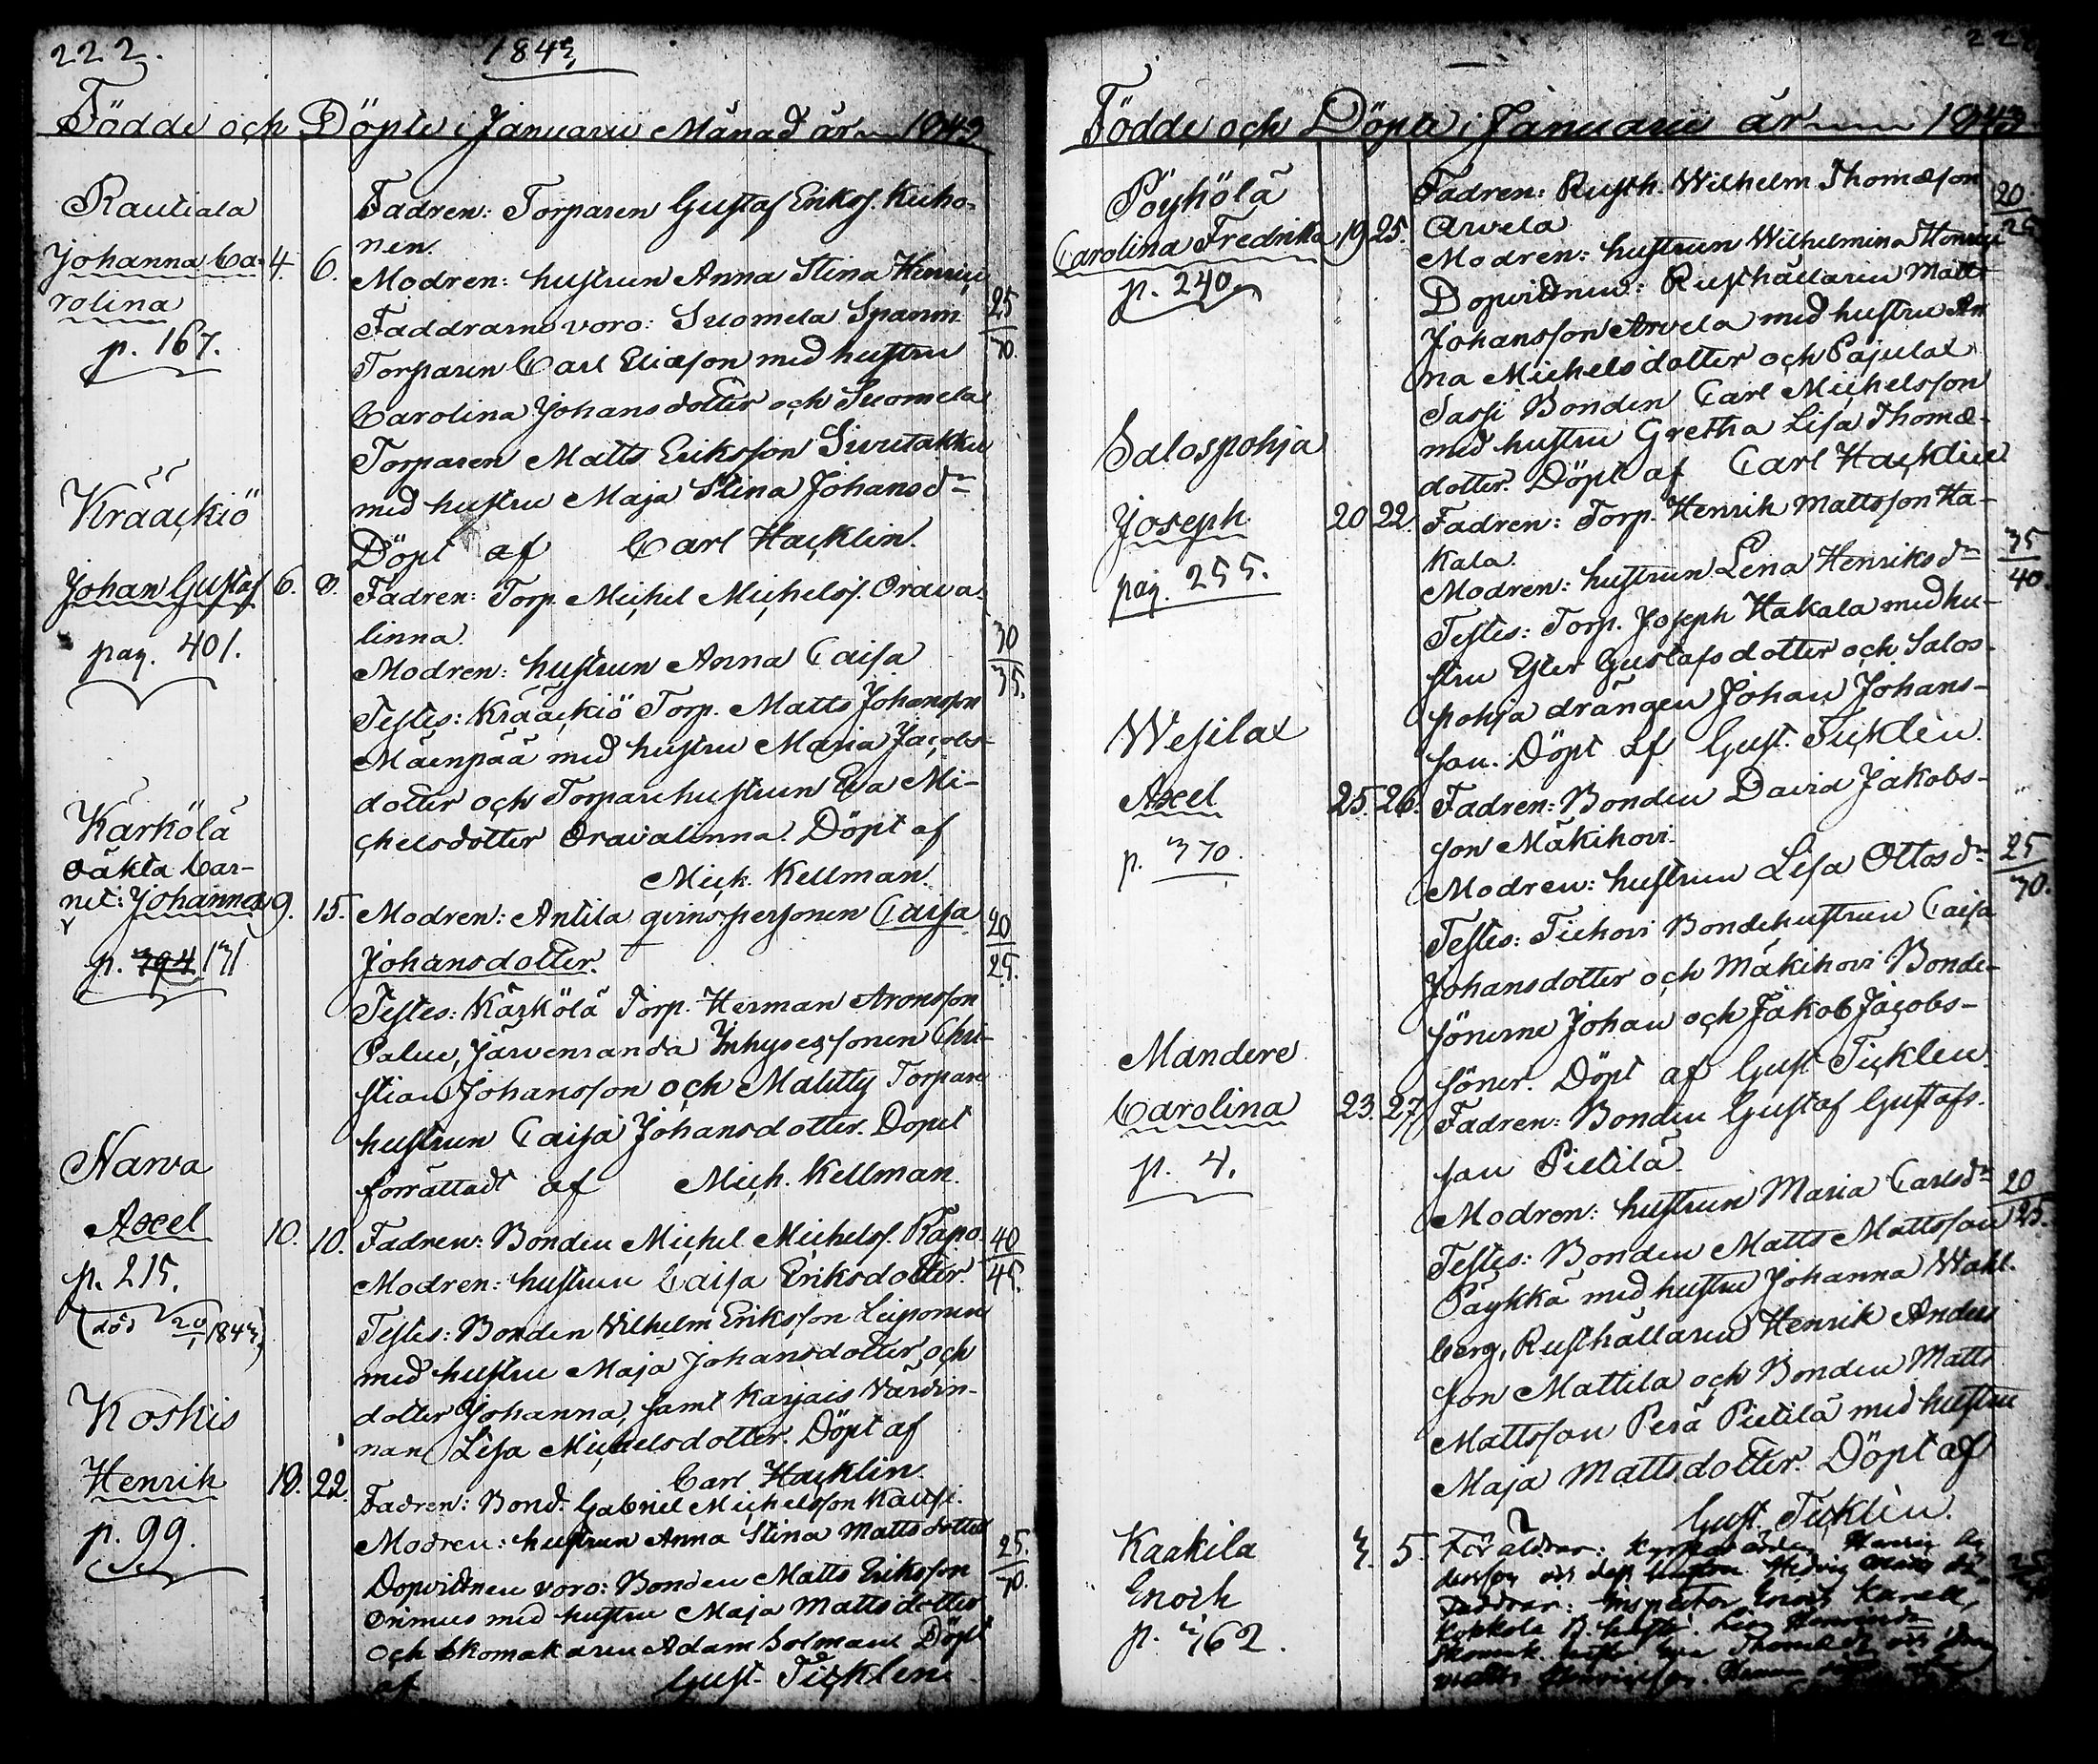 222.
1843
Födde och Döpte i Januarii Månad år 1843
Rautiala
Johanna Ca-
rolina
p. 167.
4. 6.
Fadren: Torparen Gustaf Erikss. Kuho-
nen.
Modren: hustrun Anna Stina Henrics
25/30
Faddrarne voro: Suomela Spanm.
Torparen Carl Eliasson med hustru
Carolina Johansdotter och Suomela
Torparen Matts Eriksson Sivutakku
med hustru Maja Stina Johansdr
Döpt af Carl Hacklin.
Krääckiö
Johan Gustaf 6. 8.
pag. 401.
Fadren: Torp. Michel Michelss. Orava-
linna.
Modren: hustrun Anna Caisa
30/35.
Testes: Krääckiö Torp. Matts Johansson
Mäenpää med hustru Maria Jacobs-
dotter och Torparehustrun Eva Mi-
chelsdotter Oravalinna. Döpt af
Mich. Kellman.
Kärkölä
oäkta bar-
net: Johanna 9. 15.
p. 394 131
Modren: Antila qvinspersonen Caisa
Johansdotter.
20/25.
Testes: Kärkölä Torp. Herman Aronsson
Palu, Järvenranda Inhysessonen Chri-
stian Johansson och Malitty Torpare
hustrun Caisa Johansdotter. Dopet
förrättadt af Mich. Kellman.
Narva
Axel 10. 10.
p. 215.
(död 1/20 1843)
Fadren: Bonden Michel Michelss. Rapo.
40/45.
Modren: hustrun Caisa Eriksdotter.
Testes: Bonden Wilhelm Eriksson Leiponen
med hustru Maja Johansdotter och
dotter Johanna, samt Karjais Värdin-
nan Lisa Michelsdotter. Döpt af
Carl Hacklin.
Koskis
Henrik 18. 22.
p. 99.
Fadren: Bond. Gabriel Michelsson Kausi.
Modren: hustrun Anna Stina Mattsdotter
25./30.
Dopvittnen voro: Bonden Matts Eriksson
Onimus med hustru Maja Mattsdotter
och Skomakaren Adam Holman. Döpt
af Gust. Ticklén.
Födde och Döpte i Januarii år 1843
Pöyhölä
Carolina Fredrika 19 25.
p. 240.
Fadren: Rusth. Wilhelm Thomasson
Arvela
20/25
Modren: hustrun Wilhelmina Henrics
Dopvittnen: Rusthållaren Matts
Johansson Arvela med hustru An-
na Michelsdotter och Pajulax
Sassi Bonden Carl Michelsson
med hustru Gretha Lisa Thomæ-
dotter. Döpt af Carl Hacklin
Salospohja
Joseph 20 22.
pag. 255.
Fadren: Torp. Henrik Mattsson Ha-
kala.
Modren: hustrun Lena Henriksdr
35/40.
Testes: Torp. Joseph Hakala med hu-
stru Ester Gustafsdotter och Salos-
pohja drängen Johan Johans-
son. Döpt af Gust. Ticklén.
Wesilax
Axel 25. 26.
p. 370.
Fadren: Bonden David Jakobs-
son Mäkihovi.
Modren: hustrun Lisa Ottosdr
25/30.
Testes: Tiehovi Bondehustrun Caisa
Johansdotter och Mäkihovi Bonde-
sönerne Johan och Jakob Jacobs-
söner. Döpt af Gust. Ticklén
Mandere
Carolina 23. 27.
p. 4.
Fadren: Bonden Gustaf Gustafs-
son Pietilä
Modren: hustrun Maria Carlsdr
20/25.
Testes: Bonden Matts Mattsson
Päykkä med hustru Johanna Wahl-
berg, Rusthållaren Henrik Anders
son Mattila och Bonden Matts
Mattsson Perä Pietilä med hustru
Maja Mattsdotter. Döpt af
Gust. Ticklén.
Kaakila
Enoch
p. 162.
3. 5.
Föräldrar: Kyrkovärden Henric An
dersson och dess hustru Hedvig
Faddrar: Inspector Enoch Karell,